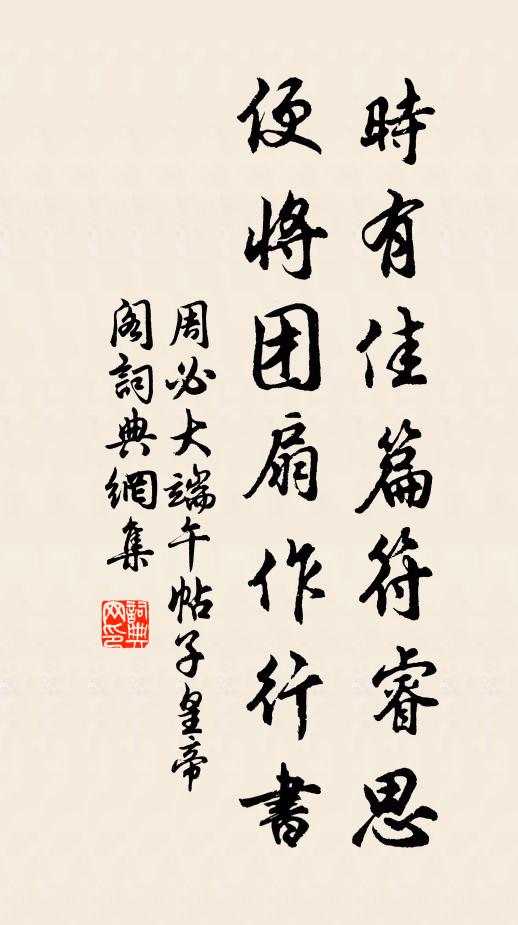 時有佳篇符睿思
便将团扇作行書
周必大端午帖子皇帝
阁詞典網集
詞典网印